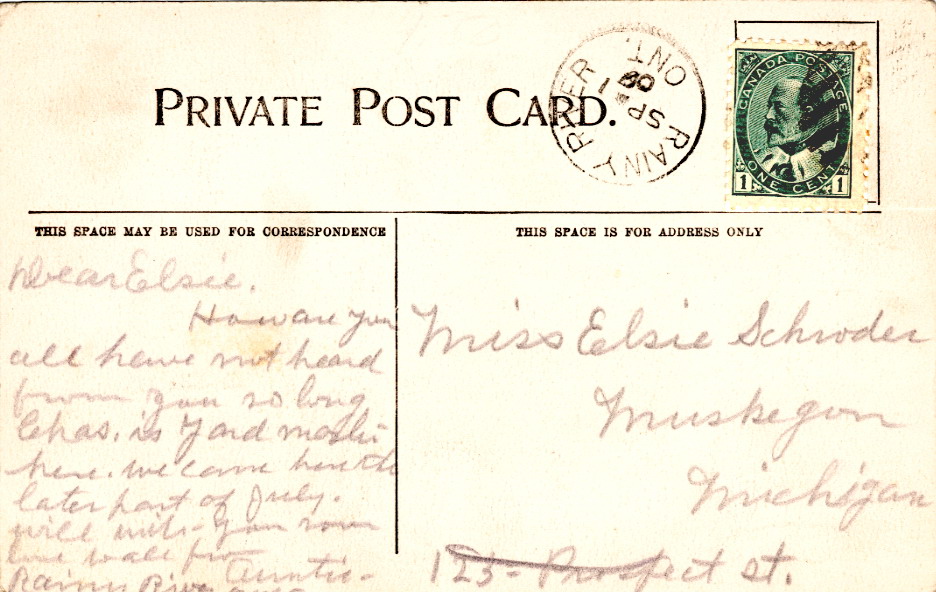 PRIVATE POST CARD.
RAINY RIVER ONT.
SP 1
09
CANADA POSTAGE
ONE CENT
1 1
THIS SPACE MAY BE USED FOR CORRESPONDENCE
Dear Elsie.
How are you
all have not heard
from you so long
Chas. is Yard
here. We came here the
later part of July.
will you soon
love to all from
Auntie-
Rainy River
THIS SPACE IS FOR ADDRESS ONLY
Miss Elsie Schroder
Muskegon
Michigan
123- Prospect st.